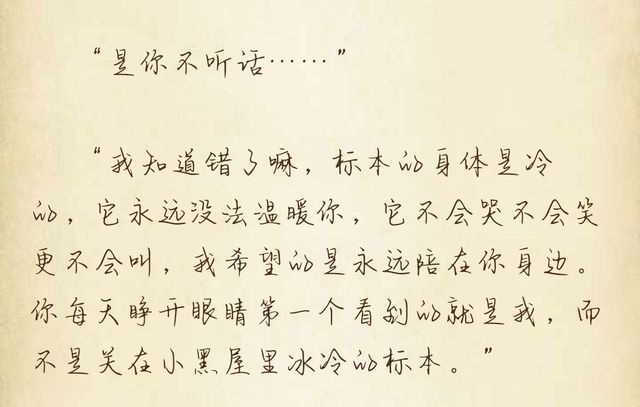 “是你不听话……”
“我知道错了嘛，标本的身体是冷
的，它永远没法温暖你，它不会哭不会笑
更不会叫，我希望的是永远陪在你身边。
你每天睁开眼睛第一个看到的就是我，而
不是关在小黑屋里冰冷的标本。”